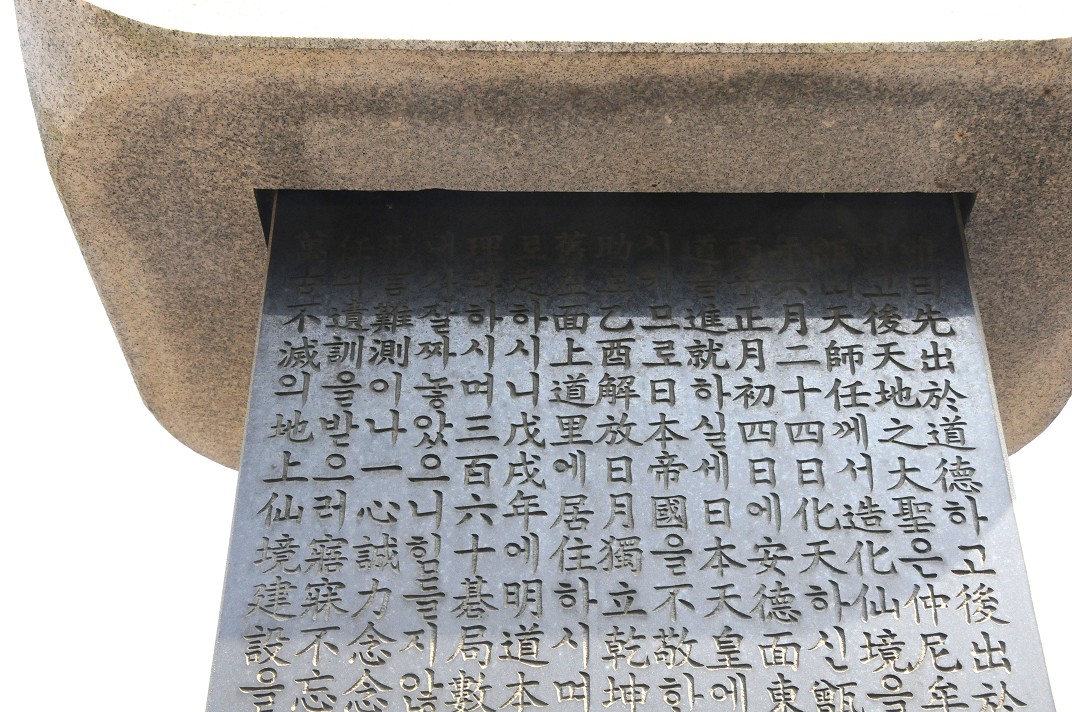 라先出於道德하고後出於
하고後天地之大聖은仲尼
甑山天師任께서造化仙境을
六月二十四日化天하신甑
丙子正月初四日에安德面東
道를進就하실세日本天皇에
시기므로日本帝國을不敬하
助乙酉解放日月獨立乾坤
舊面上道里에居住하시며
로定하시니戊戌年에明道本
理하시며三百六十碁局數
잘짜놓았으니힘들지않
形言難測이나一心誠力念念
任의遺訓을받으러寤寐不忘
萬古不滅의地上仙境建設을